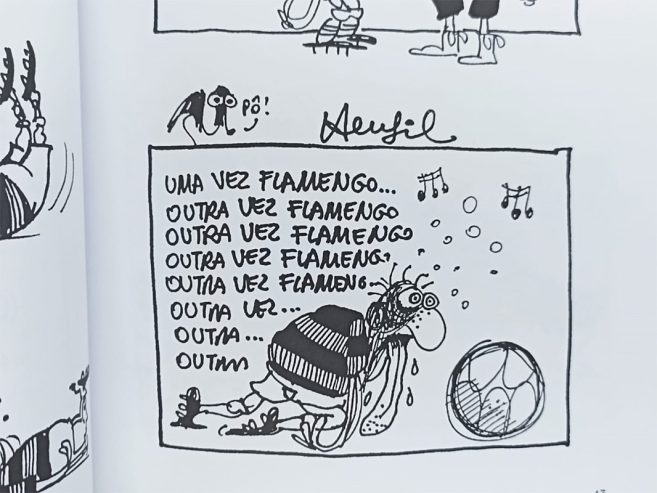 pô!
Henfil
UMA VEZ FLAMENGO...
OUTRA VEZ FLAMENGO
OUTRA VEZ FLAMENGO
OUTRA VEZ FLAMENG.
OUTRA VEZ FLAMENG..
OUTRA VEZ...
OUTRA...
OUTRA